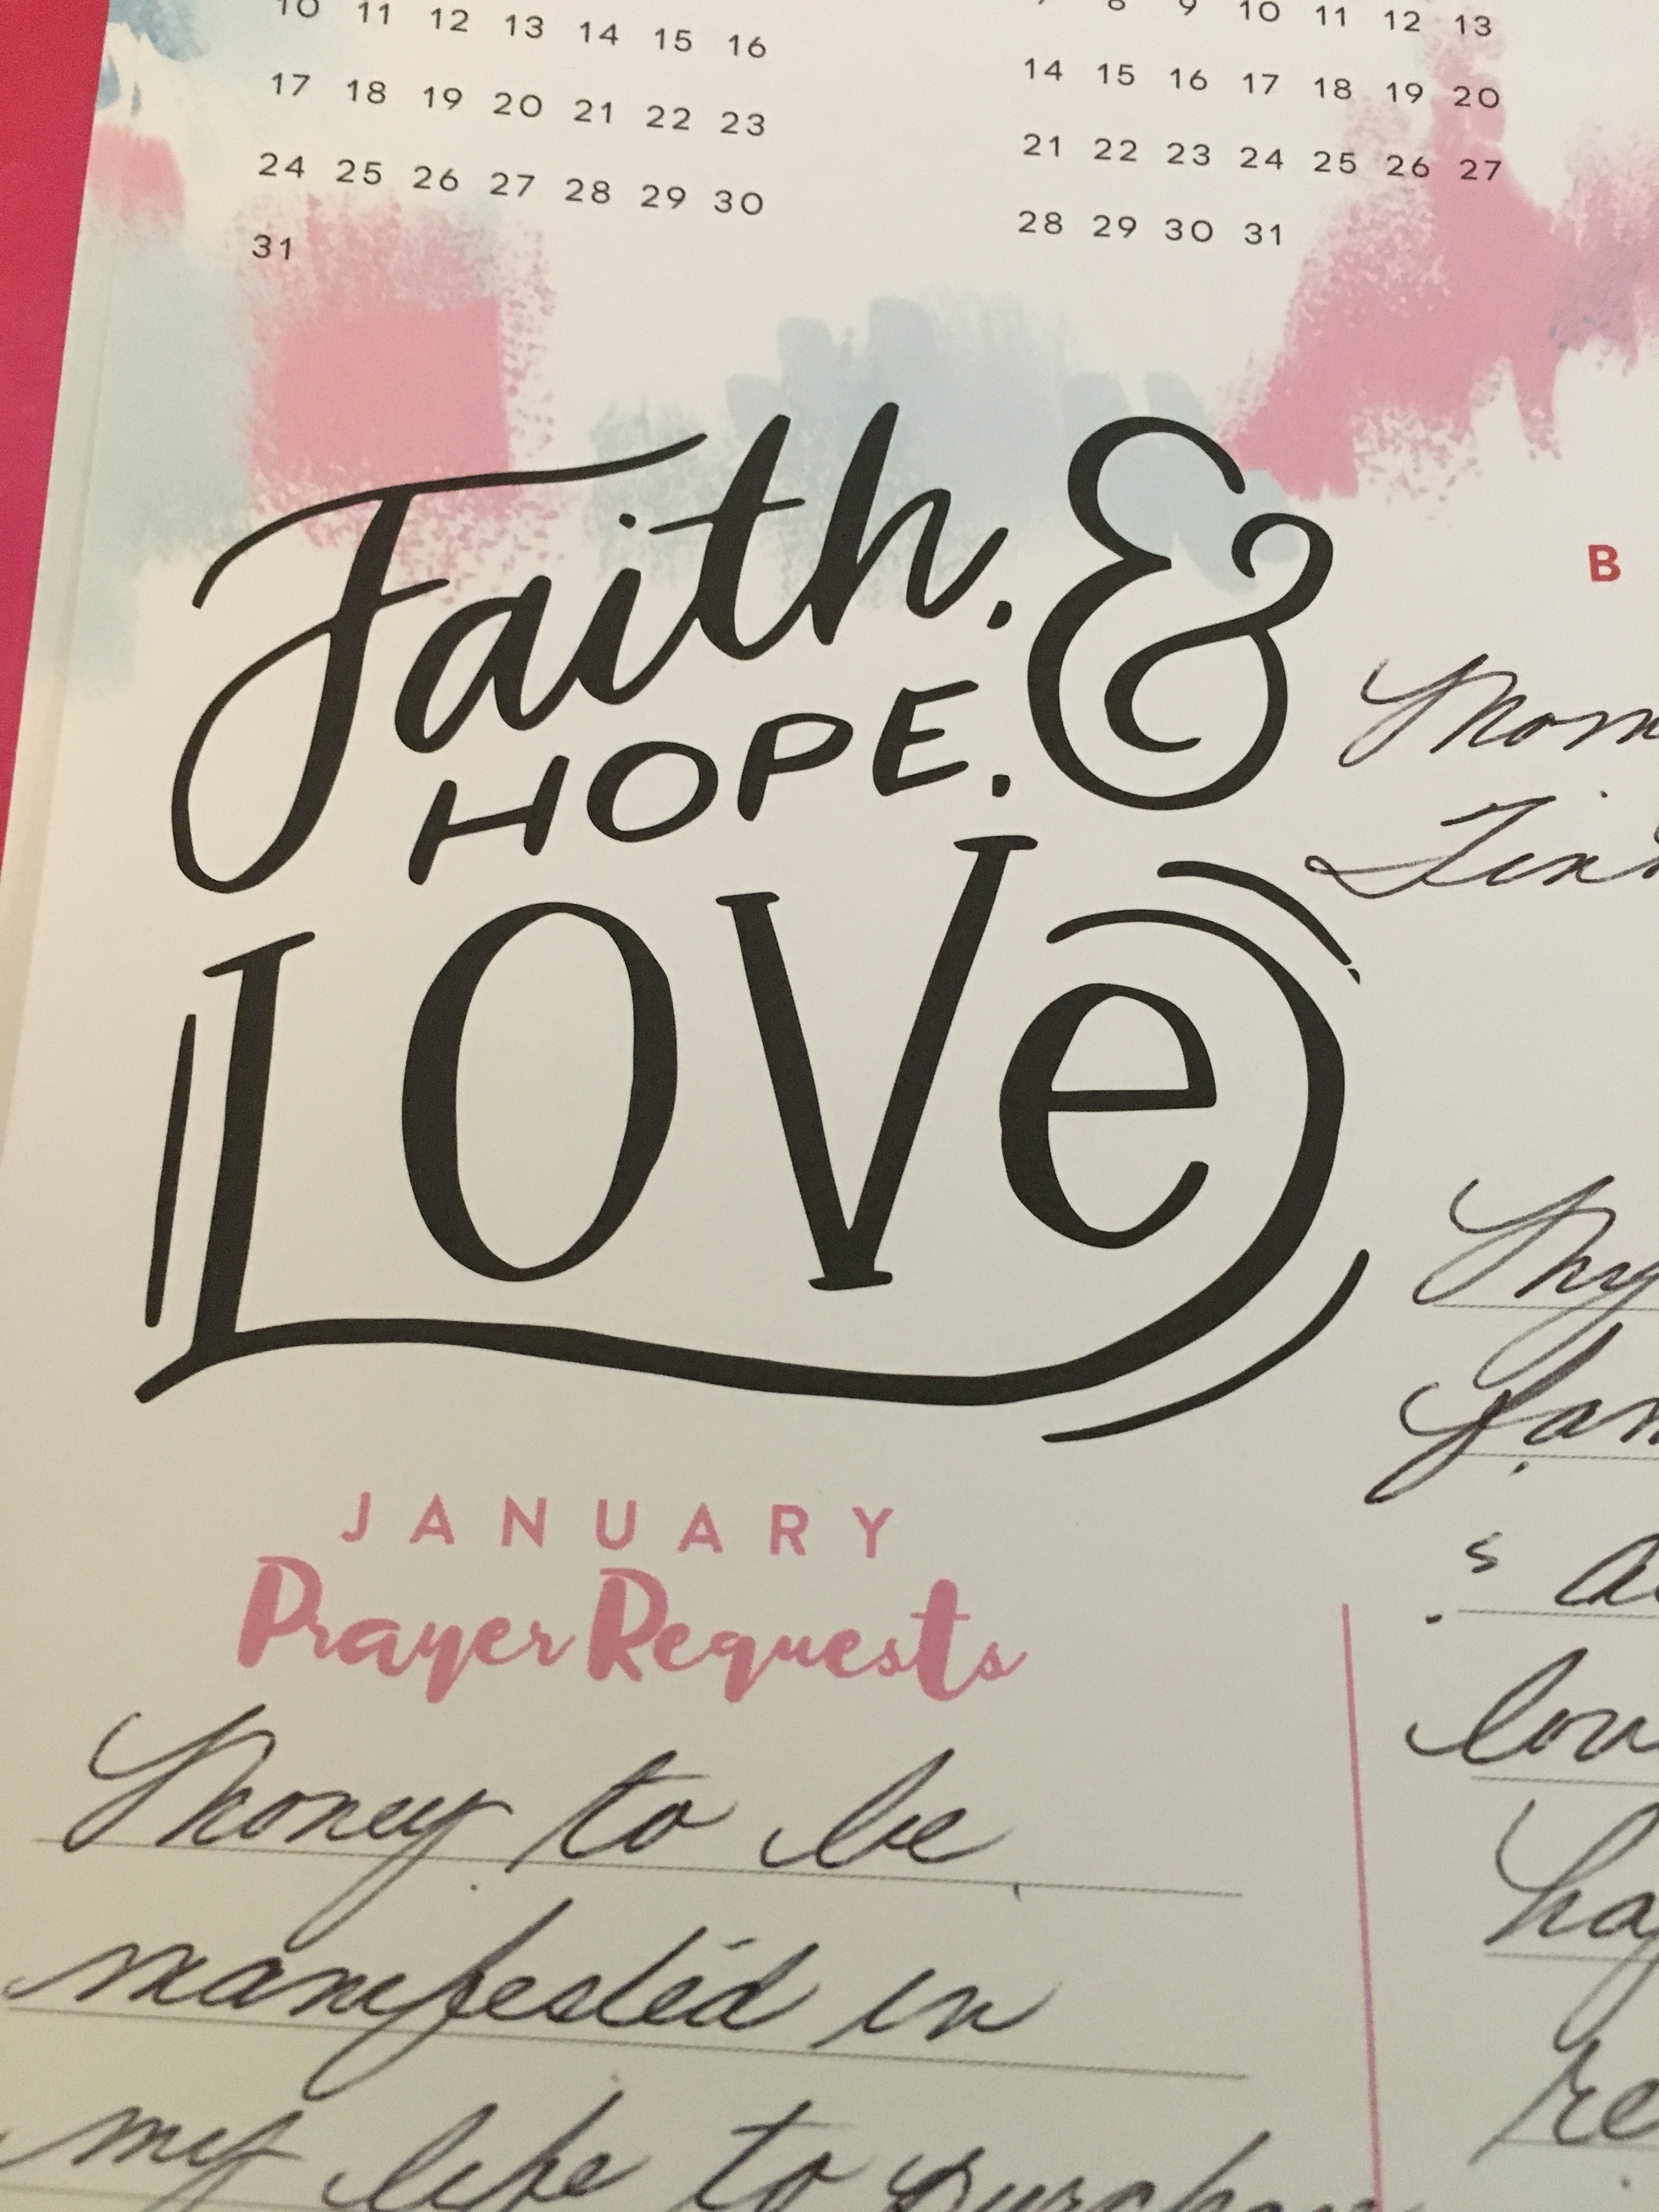 10 11 12 13 14 15 16
17 18 19 20 21 22 23
24 25 26 27 28 29 30
31
7 8 9 10 11 12 13
14 15 16 17 18 19 20
21 22 23 24 25 26 27
28 29 30 31
Faith. &
HOPE.
LOVe
JANUARY
Prayer Requests
Money to be
manifested in
my life to
B
Mom
My